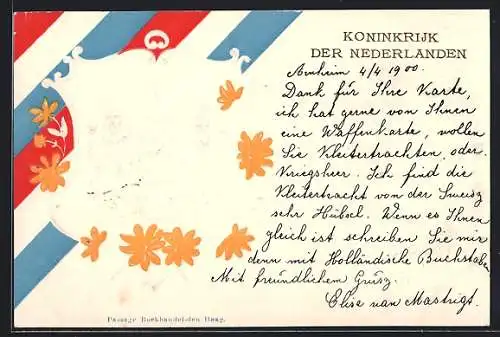 KONINKRIJK
DER NEDERLANDEN
Arnheim 4/4 1900.
Dank für Ihre Karte,
ich hat gerne von Ihnen
eine Waffenkarte, wollen
Sie Kleitertrachten, oder
Kriegsheer. Ich find die
Kleitertracht von der Sweisz
sehr Hübsch. Wenn es Ihnen
gleich ist schreiben Sie mir
denn mit Holländische Buchstaben
Mit freundlichem Grusz.
Elise van Mastrigt.
Passage Boekhandel den Haag.